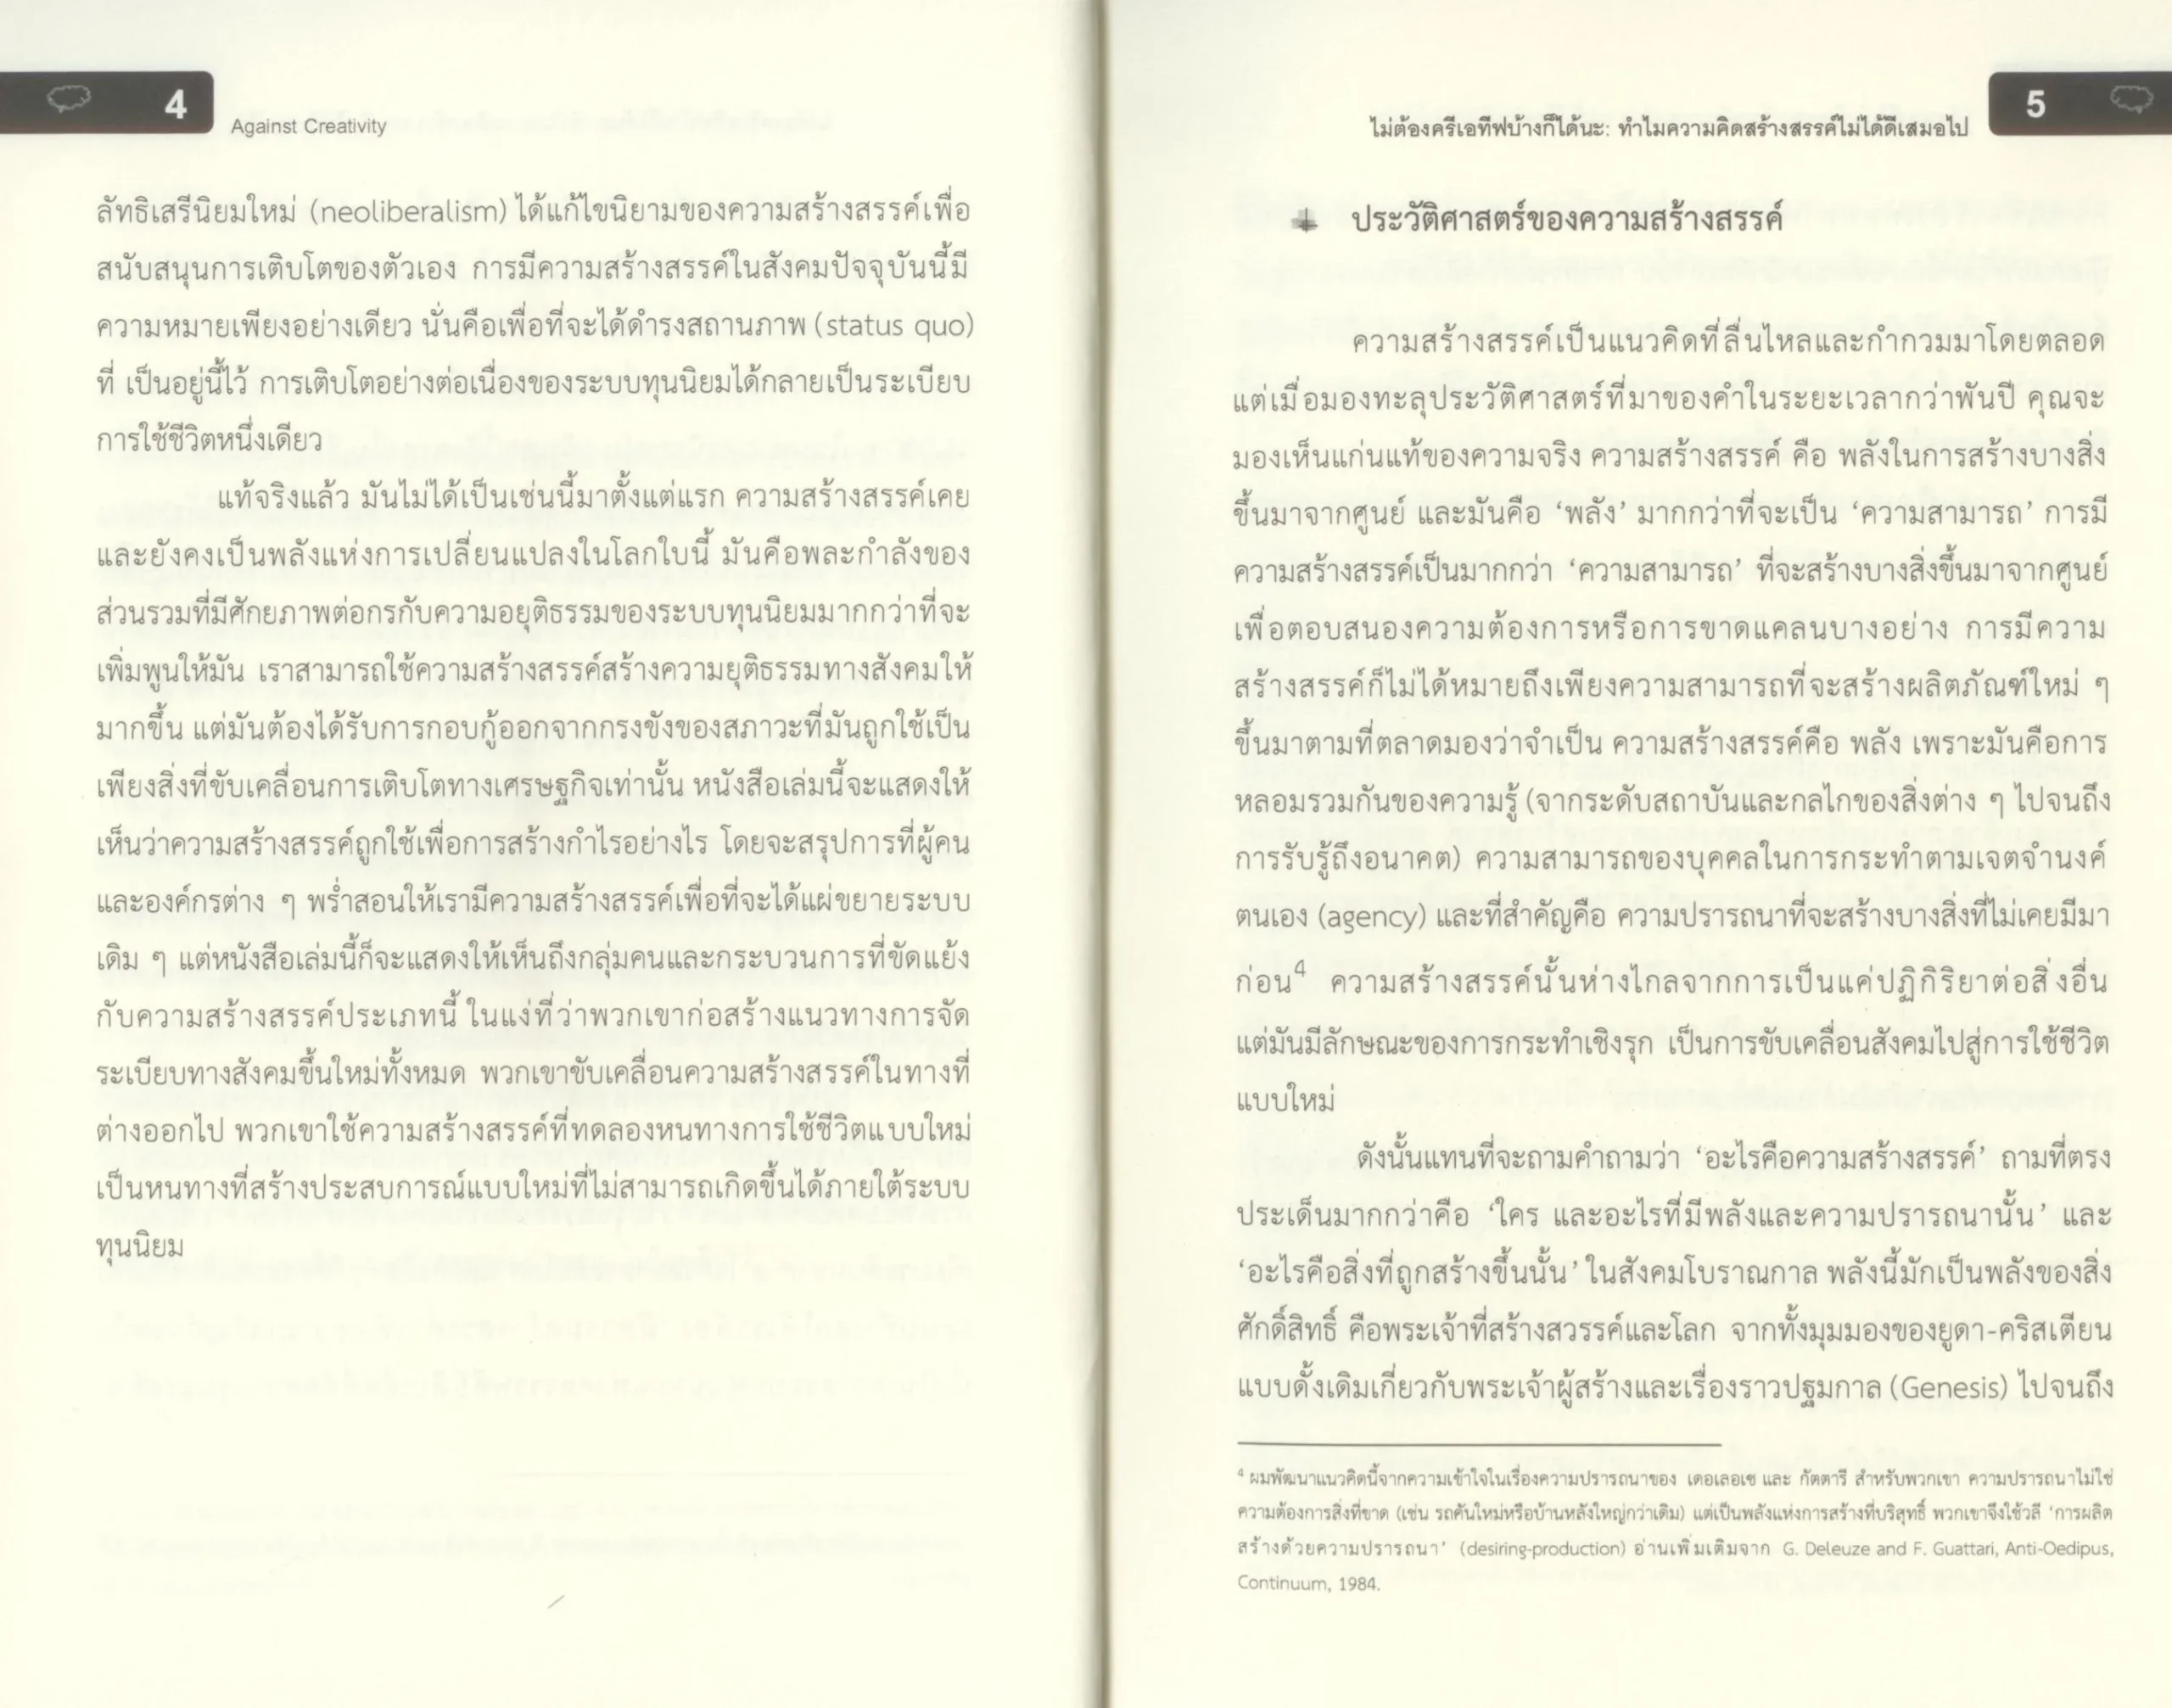 4
Against Creativity
ลัทธิเสรีนิยมใหม่ (neoliberalism) ได้แก้ไขนิยามของความสร้างสรรค์เพื่อ
สนับสนุนการเติบโตของตัวเอง การมีความสร้างสรรค์ในสังคมปัจจุบันนี้มี
ความหมายเพียงอย่างเดียว นั่นคือเพื่อที่จะได้ดำรงสถานภาพ (status quo)
ที่ เป็นอยู่นี้ไว้ การเติบโตอย่างต่อเนื่องของระบบทุนนิยมได้กลายเป็นระเบียบ
การใช้ชีวิตหนึ่งเดียว
แท้จริงแล้ว มันไม่ได้เป็นเช่นนี้มาตั้งแต่แรก ความสร้างสรรค์เคย
และยังคงเป็นพลังแห่งการเปลี่ยนแปลงในโลกใบนี้ มันคือพละกำลังของ
ส่วนรวมที่มีศักยภาพต่อกรกับความอยุติธรรมของระบบทุนนิยมมากกว่าที่จะ
เพิ่มพูนให้มัน เราสามารถใช้ความสร้างสรรค์สร้างความยุติธรรมทางสังคมให้
มากขึ้น แต่มันต้องได้รับการกอบกู้ออกจากกรงขังของสภาวะที่มันถูกใช้เป็น
เพียงสิ่งที่ขับเคลื่อนการเติบโตทางเศรษฐกิจเท่านั้น หนังสือเล่มนี้จะแสดงให้
เห็นว่าความสร้างสรรค์ถูกใช้เพื่อการสร้างกำไรอย่างไร โดยจะสรุปการที่ผู้คน
และองค์กรต่าง ๆ พร่ำสอนให้เรามีความสร้างสรรค์เพื่อที่จะได้แผ่ขยายระบบ
เดิม ๆ แต่หนังสือเล่มนี้ก็จะแสดงให้เห็นถึงกลุ่มคนและกระบวนการที่ขัดแย้ง
กับความสร้างสรรค์ประเภทนี้ ในแง่ที่ว่าพวกเขาก่อสร้างแนวทางการจัด
ระเบียบทางสังคมขึ้นใหม่ทั้งหมด พวกเขาขับเคลื่อนความสร้างสรรค์ในทางที่
ต่างออกไป พวกเขาใช้ความสร้างสรรค์ที่ทดลองหนทางการใช้ชีวิตแบบใหม่
เป็นหนทางที่สร้างประสบการณ์แบบใหม่ที่ไม่สามารถเกิดขึ้นได้ภายใต้ระบบ
ทุนนิยม
ไม่ต้องครีเอทีฟบ้างก็ได้นะ: ทำไมความคิดสร้างสรรค์ไม่ได้ดีเสมอไป
5
ประวัติศาสตร์ของความสร้างสรรค์
ความสร้างสรรค์เป็นแนวคิดที่ลื่นไหลและกำกวมมาโดยตลอด
แต่เมื่อมองทะลุประวัติศาสตร์ที่มาของคำในระยะเวลากว่าพันปี คุณจะ
มองเห็นแก่นแท้ของความจริง ความสร้างสรรค์ คือ พลังในการสร้างบางสิ่ง
ขึ้นมาจากศูนย์ และมันคือ ‘พลัง’ มากกว่าที่จะเป็น ‘ความสามารถ’ การมี
ความสร้างสรรค์เป็นมากกว่า ‘ความสามารถ’ ที่จะสร้างบางสิ่งขึ้นมาจากศูนย์
เพื่อตอบสนองความต้องการหรือการขาดแคลนบางอย่าง การมีความ
สร้างสรรค์ก็ไม่ได้หมายถึงเพียงความสามารถที่จะสร้างผลิตภัณฑ์ใหม่ ๆ
ขึ้นมาตามที่ตลาดมองว่าจำเป็น ความสร้างสรรค์คือ พลัง เพราะมันคือการ
หลอมรวมกันของความรู้ (จากระดับสถาบันและกลไกของสิ่งต่าง ๆ ไปจนถึง
การรับรู้ถึงอนาคต) ความสามารถของบุคคลในการกระทำตามเจตจำนงค์
ตนเอง (agency) และที่สำคัญคือ ความปรารถนาที่จะสร้างบางสิ่งที่ไม่เคยมีมา
ก่อน4 ความสร้างสรรค์นั้นห่างไกลจากการเป็นแค่ปฏิกิริยาต่อสิ่งอื่น
แต่มันมีลักษณะของการกระทำเชิงรุก เป็นการขับเคลื่อนสังคมไปสู่การใช้ชีวิต
แบบใหม่
ดังนั้นแทนที่จะถามคำถามว่า ‘อะไรคือความสร้างสรรค์’ ถามที่ตรง
ประเด็นมากกว่าคือ ‘ใคร และอะไรที่มีพลังและความปรารถนานั้น’ และ
‘อะไรคือสิ่งที่ถูกสร้างขึ้นนั้น’ ในสังคมโบราณกาล พลังนี้มักเป็นพลังของสิ่ง
ศักดิ์สิทธิ์ คือพระเจ้าที่สร้างสวรรค์และโลก จากทั้งมุมมองของยูดา-คริสเตียน
แบบดั้งเดิมเกี่ยวกับพระเจ้าผู้สร้างและเรื่องราวปฐมกาล (Genesis) ไปจนถึง
4 ผมพัฒนาแนวคิดนี้จากความเข้าใจในเรื่องความปรารถนาของ เดอเลอเซ และ กัตตารี สำหรับพวกเขา ความปรารถนาไม่ใช่
ความต้องการสิ่งที่ขาด (เช่น รถคันใหม่หรือบ้านหลังใหญ่กว่าเดิม) แต่เป็นพลังแห่งการสร้างที่บริสุทธิ์ พวกเขาจึงใช้วลี ‘การผลิต
สร้างด้วยความปรารถนา’ (desiring-production) อ่านเพิ่มเติมจาก G. Deleuze and F. Guattari, Anti-Oedipus,
Continuum, 1984.